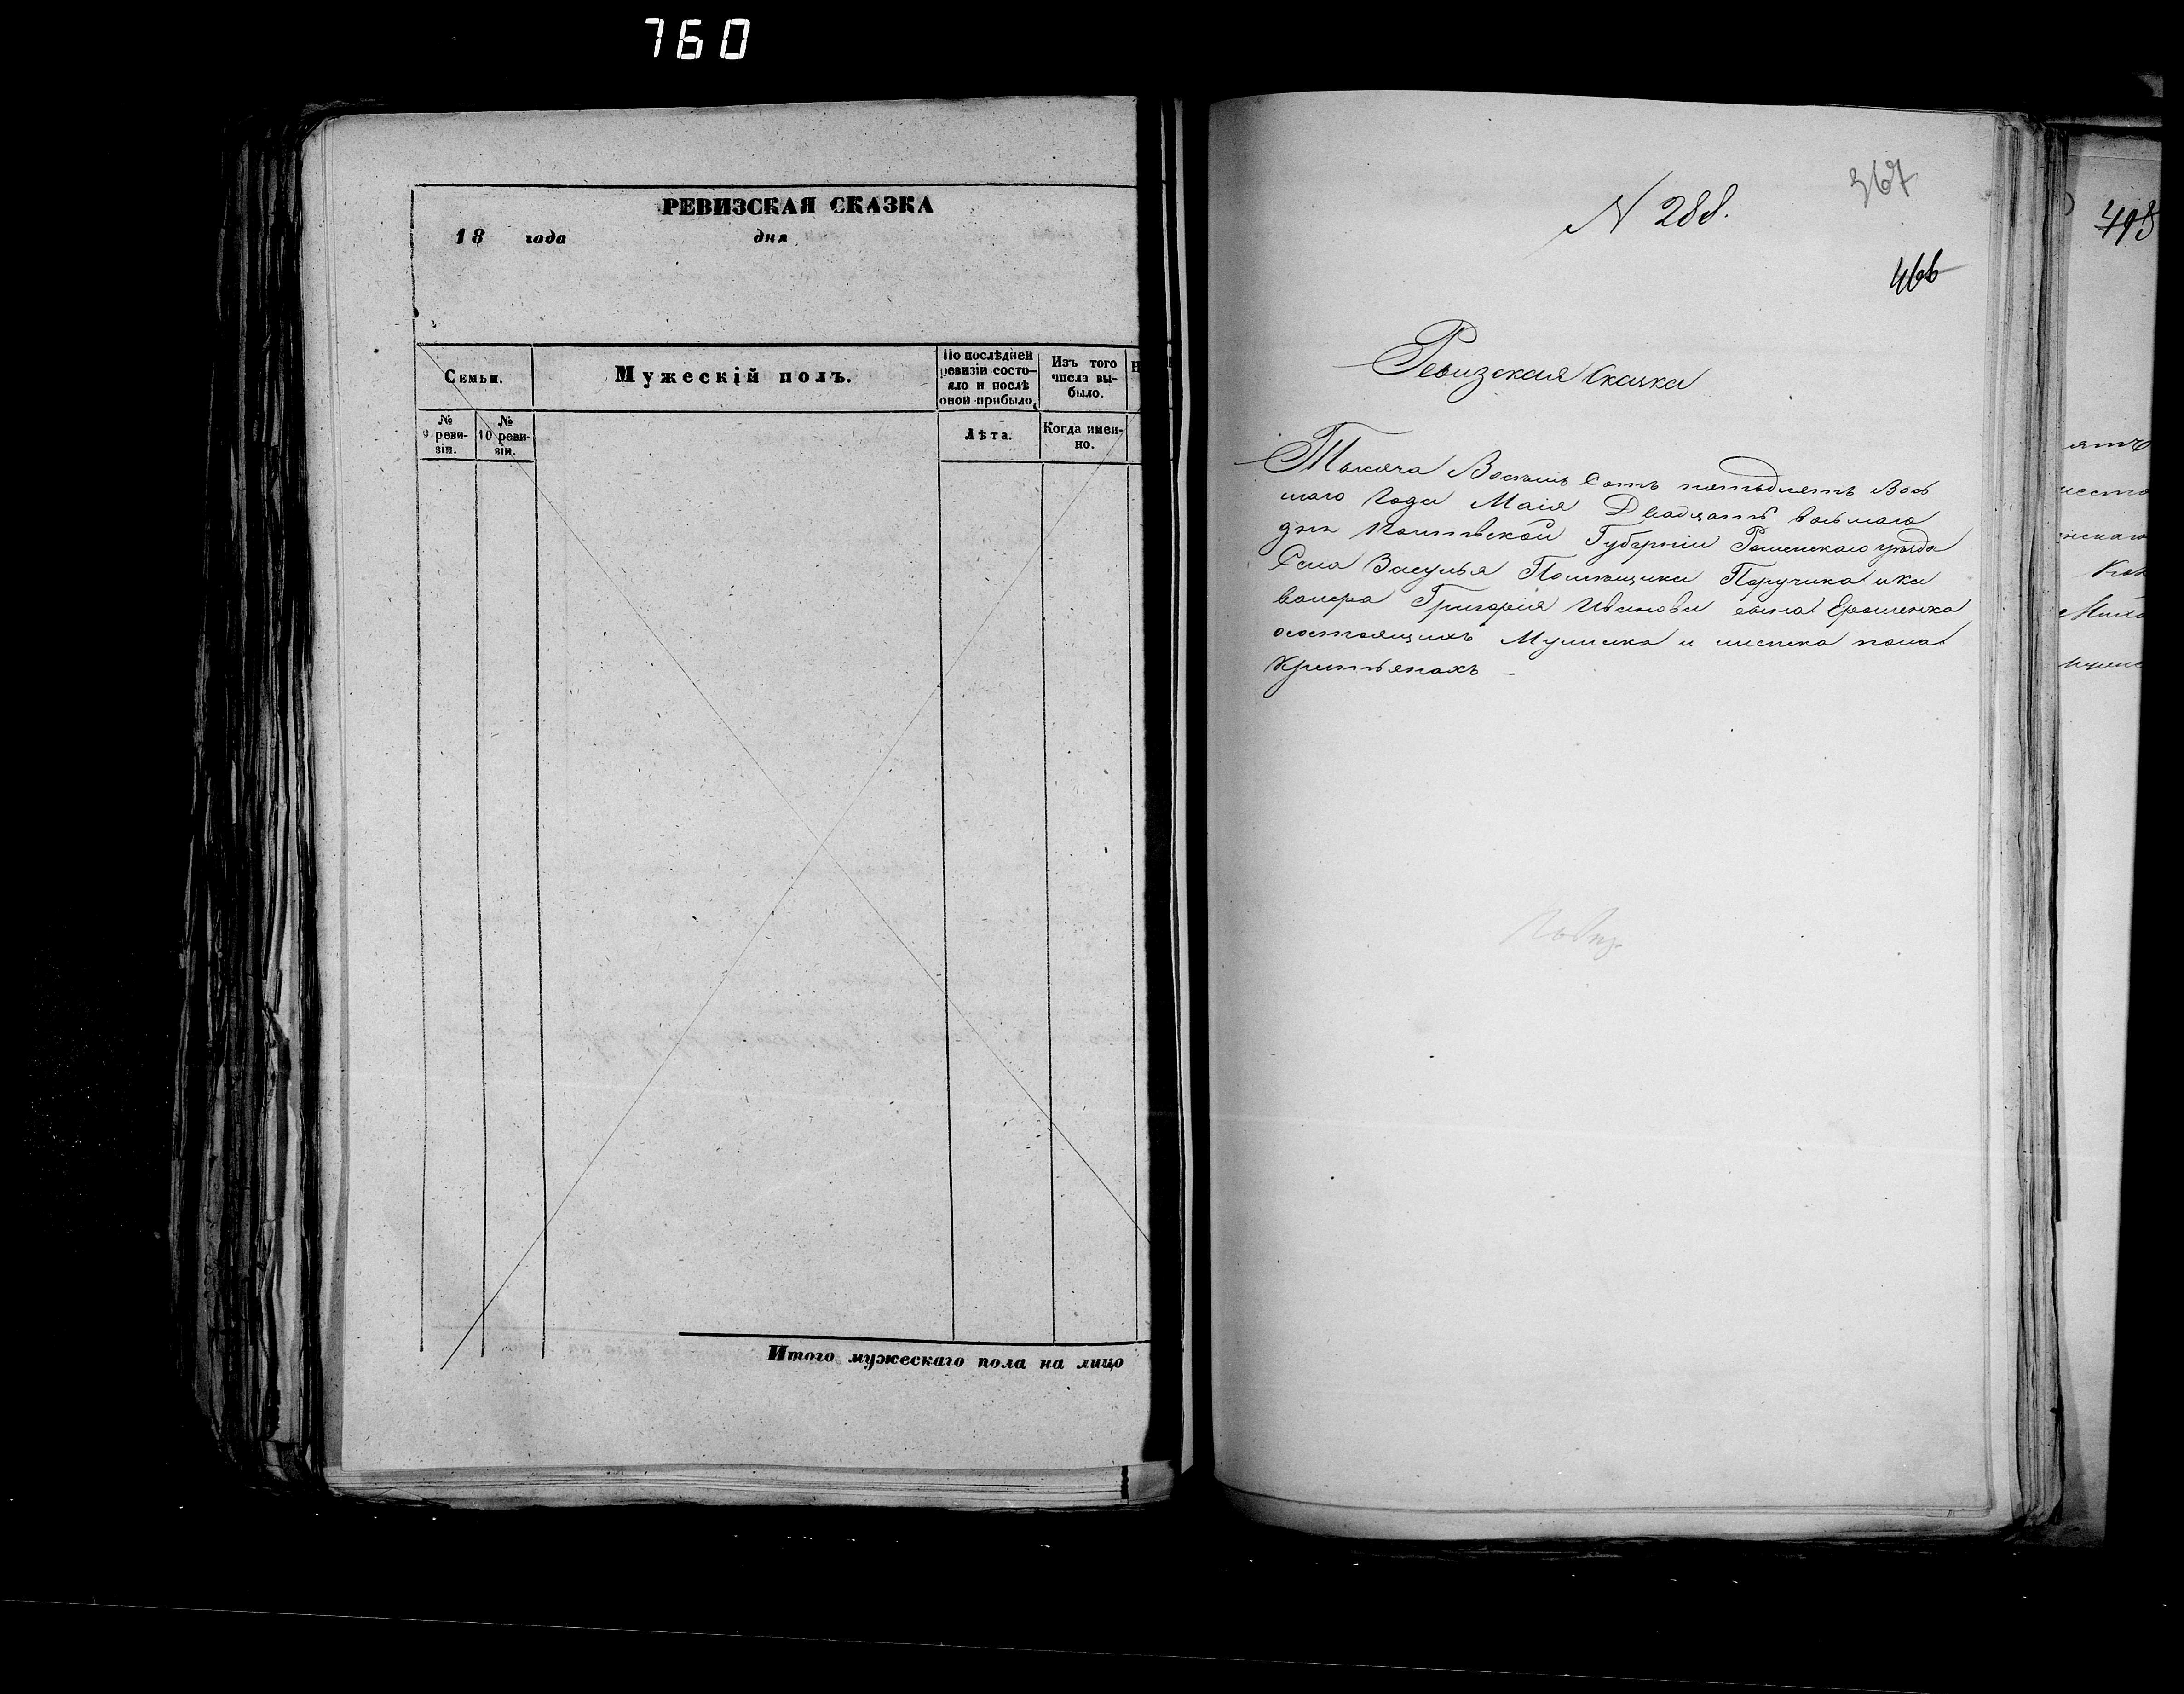 760
РЕВИЗСКАЯ СКАЗКА
18 года дня
Семьи.
Мужескій полъ.
По послѣдней ревизіи состо-
яло и послѣ оной прибыло.
Изъ того числа вы-
было.
№ 9 реви-
зіи.
№ 10 реви-
зіи.
Лѣта.
Когда имен-
но.
Итого мужескаго пола на лицо
N 288.
367
466
Ревизская Сказка
Тысяча Восемь Сотъ пятьдесятъ Вось
маго Года Маія Двадцать восьмаго
дня Полтавской Губерніи Роменскаго уѣзда
Села Засулья Помѣщика Поручика и ка
валера Григорія Иванова сына Ерошенка
о состоящихъ Мужеска и женска пола
Крестьянахъ